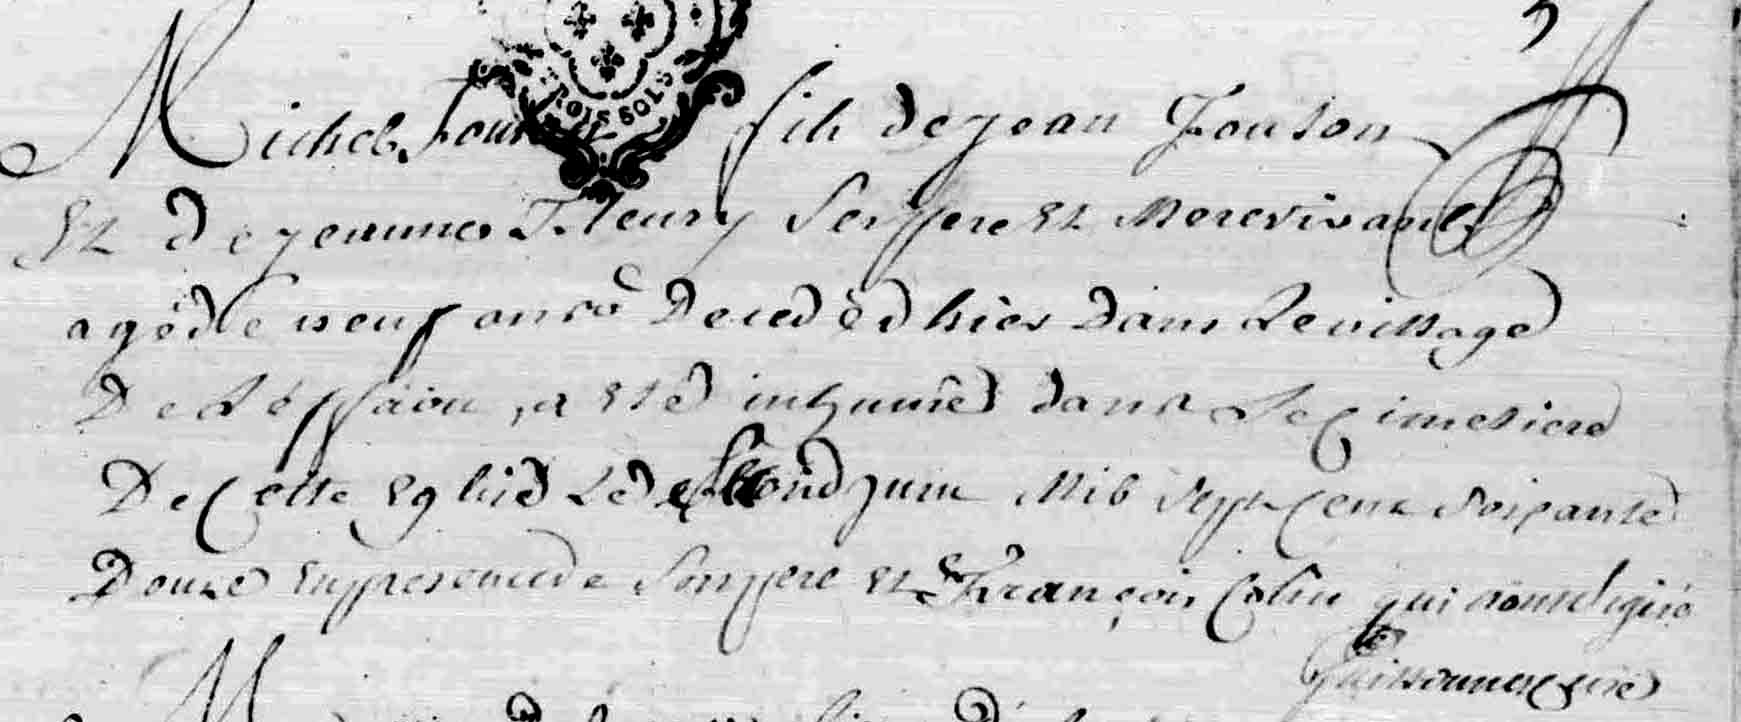 TROIS SOLS
Michel fils de jean Fouson
Et de jeanne Fleury Ses pere Et Mere vivant
agé de neuf ans Decedéd hier Dans Le village
De a esté inhumé dans Le Cimetiere
De Cette Eglise Le second juin Mil Sept Cent soixante
Douze En presence de Son pere Et De François Colin qui n'ont signé
curé